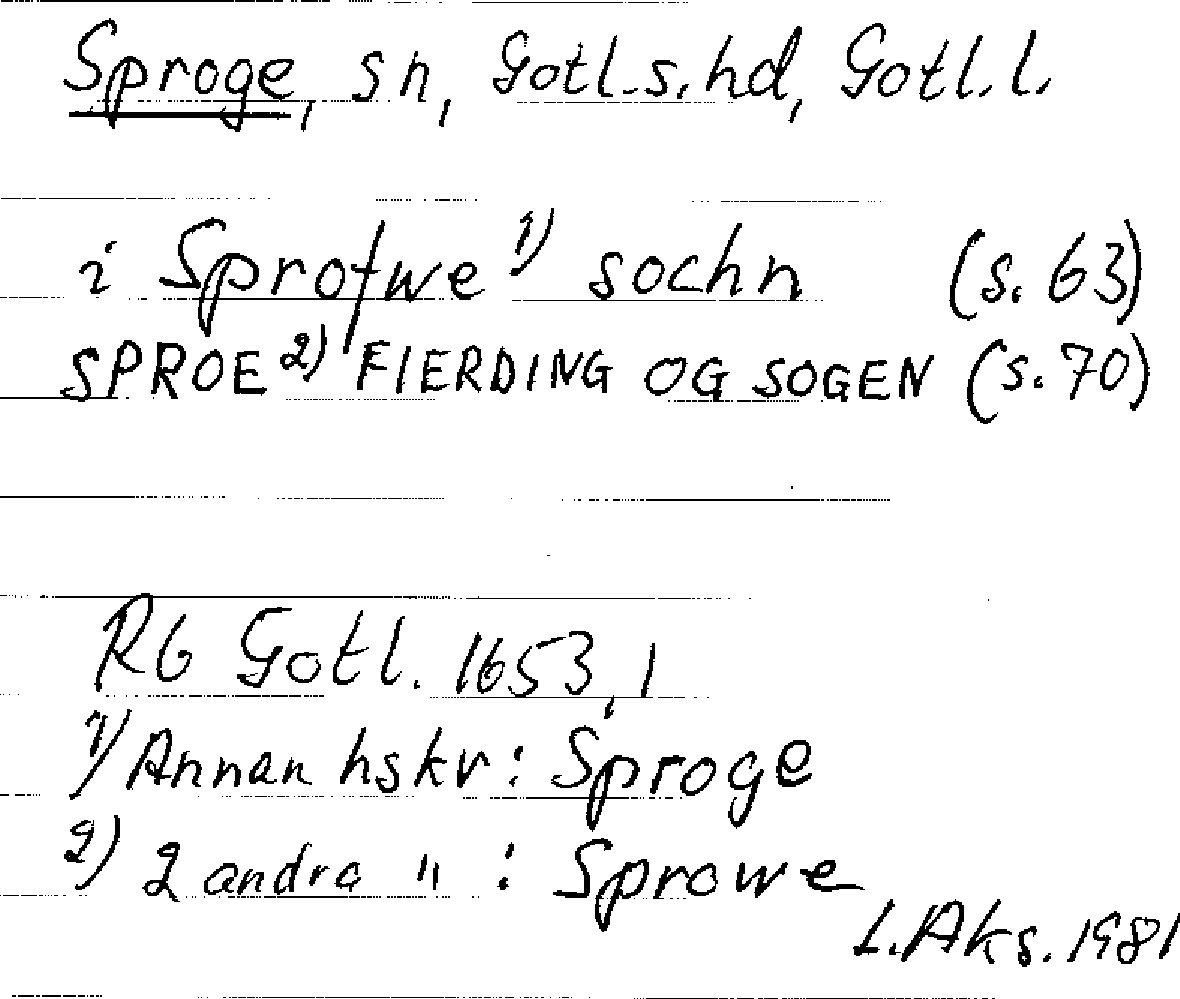 Sproge, sn, Gotl.s.hd, Gotl.l.
i Sprofwe 1) sochn (s. 63)
SPROE 2) FIERDING OG SOGEN (s. 70)
Rb Gotl. 1653,1
1) Annan hskr: Sproge
2) 2 andra " : Sprowe
L.Aks. 1981